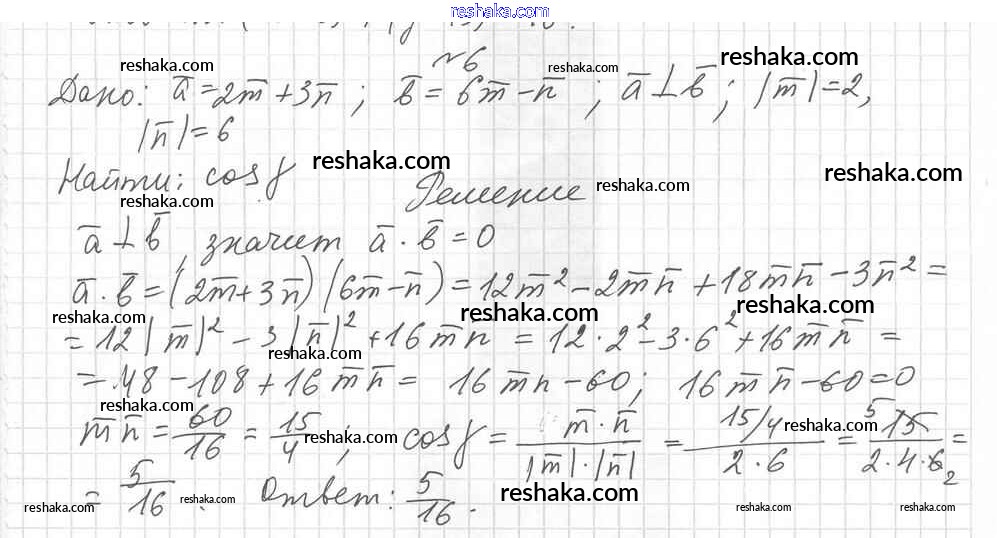 reshaka.com
№6
reshaka.com reshaka.com reshaka.com
Дано: a̅ = 2m̅ + 3n̅ ; b̅ = 6m̅ − n̅ ; a̅ ⊥ b̅ ; |m̅| = 2,
|n̅| = 6
Найти: cos γ reshaka.com reshaka.com reshaka.com
reshaka.com Решение
a̅ ⊥ b̅, значит a̅ · b̅ = 0
reshaka.com reshaka.com
a̅ · b̅ = (2m̅ + 3n̅)(6m̅ − n̅) = 12m̅² − 2m̅n̅ + 18m̅n̅ − 3n̅² =
reshaka.com reshaka.com reshaka.com
= 12|m̅|² − 3|n̅|² + 16m̅n̅ = 12·2² − 3·6² + 16m̅n̅ =
reshaka.com
= 48 − 108 + 16m̅n̅ = 16m̅n̅ − 60; 16m̅n̅ − 60 = 0
reshaka.com reshaka.com
m̅n̅ = 60/16 = 15/4 ; cos γ = m̅·n̅ / |m̅|·|n̅| = 15/4 / 2·6 = 5 15 / 2·4·6 2 =
reshaka.com reshaka.com
= 5/16 . Ответ: 5/16 .
reshaka.com reshaka.com reshaka.com reshaka.com reshaka.com